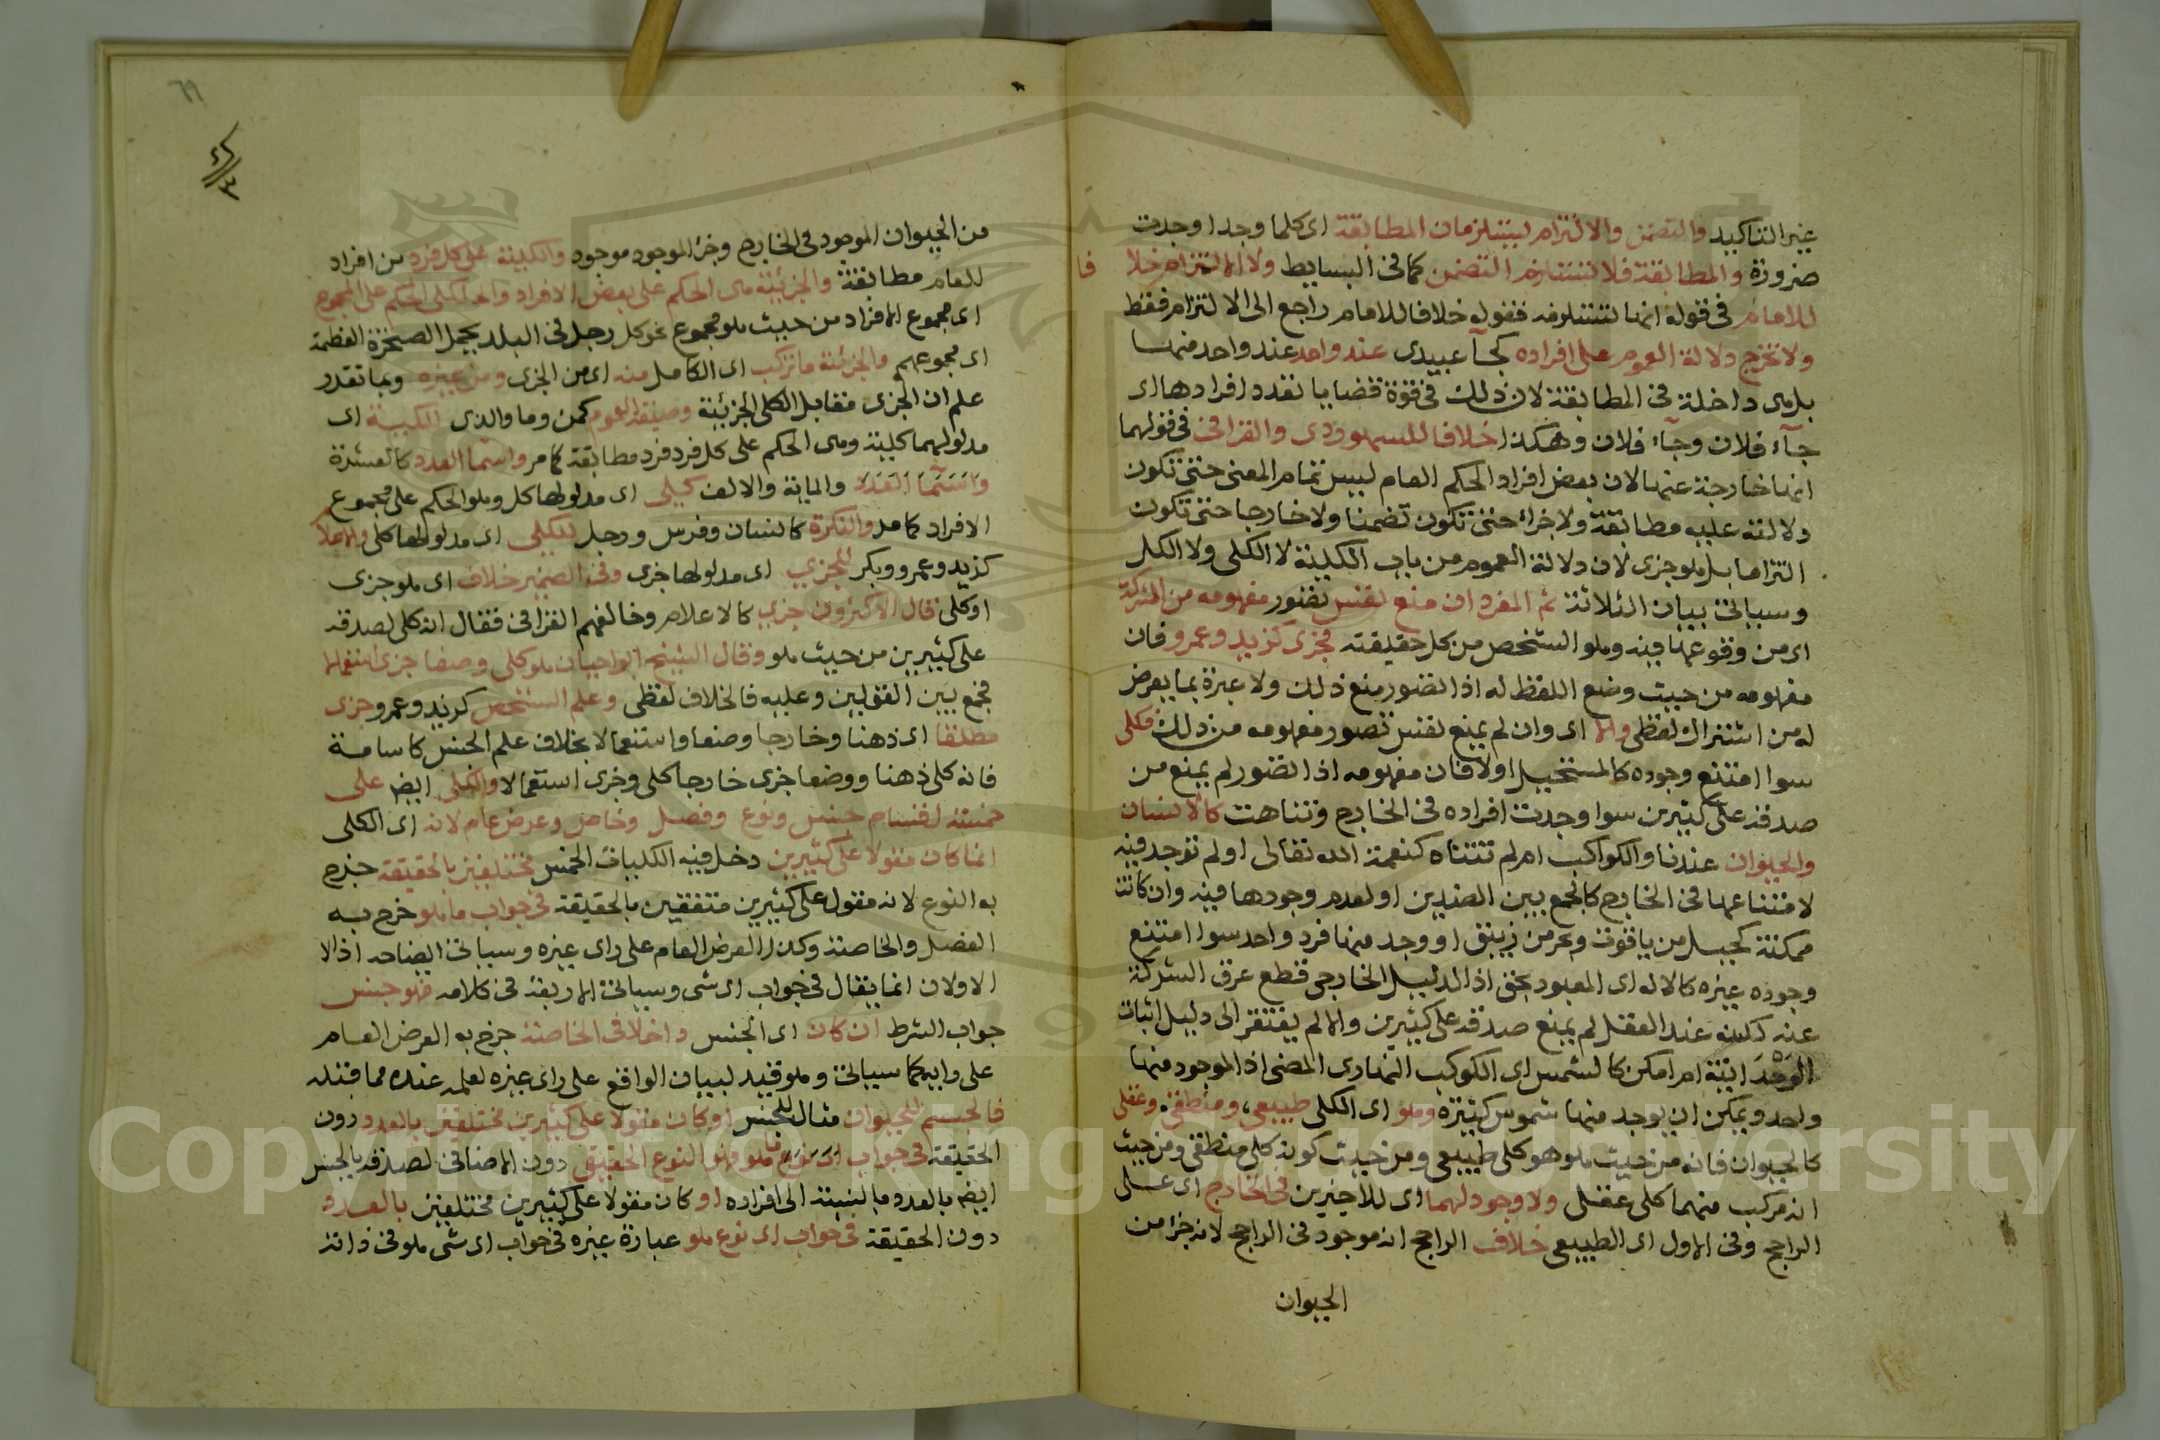 غير التاكيد والتضمن والالتزام ليستلزمان المطابقة اى كلما وجدا وجدت
ضرورة والمطابقة فلا تستلزم التضمن كما فى البسايط ولا الالتزام خلا فا
للامام فى قوله انها تستلزمه فقوله خلافا للامام راجع الى الالتزام فقط
ولا تخرج دلالة العموم على افراده كجآ عبيدى عند واحد عند واحد منها
بل هى داخلة فى المطابقة لان ذلك فى قوة قضايا بعدد افرادها اى
جآء فلان وجآء فلان وهكذا خلافا للسهروردى والقرافى فى قولهما
انها خارجة عنها لان بعض افراد الحكم العام ليس تمام المعنى حتى تكون
دلالته عليه مطابقة ولا جزاء حتى تكون تضمنا ولا خارجا حتى تكون
التزاما بل هو جزى لان دلالة العموم من باب الكلية لا الكلى ولا الكل
وسياتى بيان الثلاثة ثم المفرد ان منع نفس تصور مفهومه من الشركة
اى من وقوعها فيه وهو الشخص من كل حقيقته فجزى كزيد وعمرو فان
مفهومه من حيث وضع اللفظ له اذا تصور منع ذلك ولا عبرة بما يعرض
له من اشتراك لفظى والا اى وان لم يمنع نفس تصور مفهومه من ذلك فكلى
سوا امتنع وجوده كالمستحيل اولا فان مفهومه اذا تصور لم يمنع من
صدقه على كثيرين سوا وجدت افراده فى الخارج وتناهت كالانسان
والحيوان عندنا والكواكب ام لم تتناه كنعمة الله تعالى او لم توجد فيه
لامتناعها فى الخارج كالجمع بين الضدين او لعدم وجودها فيه وان كانت
ممكنة كجبل من ياقوت وبحر من زيبق او وجد منها فرد واحد سوا امتنع
وجوده غيره كالاله اى المعبود بحق اذ الدليل الخارجى قطع عرق الشركة
عنه لكنه عند العقل لم يمنع صدقه على كثيرين والا لم يفتقر الى دليل اثبات
الوحدانية ام امكن كالشمس اى الكوكب النهارى المضى اذ الموجود منها
واحد ويمكن ان يوجد منها شموس كثيرة وهو اى الكلى طبيعى ومنطقى وعقلى
كالحيوان فانه من حيث هو هو كلى طبيعى ومن حيث كونه كلى منطقى ومن حيث
انه مركب منهما كلى عقلى ولا وجود لهما اى للاخيرين فى الخارج اى على
الراجح وفى الاول اى الطبيعى خلاف الراجح انه موجود فى الراجح لانه جزا من
الحيوان
٦٩
من الحيوان الموجود فى الخارج وجزء الموجود موجود والكلية على كل فرد من افراد
للعام مطابقة والجزئية هى الحكم على بعض الافراد والكلى الحكم على المجموع
اى مجموع الافراد من حيث هو مجموع نحو كل رجل فى البلد يحمل الصخرة العظيمة
اى مجموعهم والجزئية ما تركب اى الكامل منه اى من الجزى ومن غيره وبما تقدر
علم ان الجزى مقابل الكلى الجزئية وصيغة العموم كمن وما والذى للكلية اى
مدلولهما كلية وهى الحكم على كل فرد فرد مطابقة كما مر واسما العدد كالعشرة
واسما العدد والماية والالف كلى اى مدلولها كل وهو الحكم على مجموع
الافراد كما مر والنكرة كانسان وفرس ورجل للكلى اى مدلولها كلى والاعلا
كزيد وعمرو وبكر للجزى اى مدلولها جزى وفى الضمير خلاف اى هو جزى
او كلى قال الاكثرون جزى كالاعلام وخالفهم القرافى فقال انه كلى لصدقه
على كثيرين من حيث هو وقال الشيخ ابو احيان هو كلى وضعا جزى استعمالا
فجمع بين القولين وعليه فالخلاف لفظى وعلم الشخص كزيد وعمرو جزى
مطلقا اى ذهنا وخارجا وضعا واستعمالا بخلاف علم الجنس كاسامة
فانه كلى ذهنا ووضعا جزى خارجا كلى وجزى استعمالا والكلى ايضا على
خمسة اقسام جنس ونوع وفصل وخاص وعرض عام لانه اى الكلى
انما كان مقولا على كثيرين دخل فيه الكليات الخمس مختلفين بالحقيقة خرج
به النوع لانه مقول على كثيرين متفقين بالحقيقة فى جواب ما هو خرج به
الفصل والخاصة وكذا العرض العام على راى غيره وسياتى ايضاحه اذ الا
الاولان انما يقال فى جواب اى شى وسياتى الاربعة فى كلامه فهو جنس
جواب الشرط ان كان اى الجنس داخلا فى الخاصة خرج به العرض العام
على رايه كما سياتى وهو قيد لبيان الواقع على راى غيره لعلمه عنده مما قبله
فالجسم للحيوان مثال للجنس او كان مقولا على كثيرين مختلفين بالعدد دون
الحقيقة فى جواب اى نوع هو فهو النوع الحقيقى دون الاضافى لصدقه بالجنس
ايضا بالعدد بالنسبة الى افراده او كان مقولا على كثيرين مختلفين بالعدد
دون الحقيقة فى جواب اى نوع هو عبارة غيره فى جواب اى شى هو فى ذاته
Copyright © King Saud University